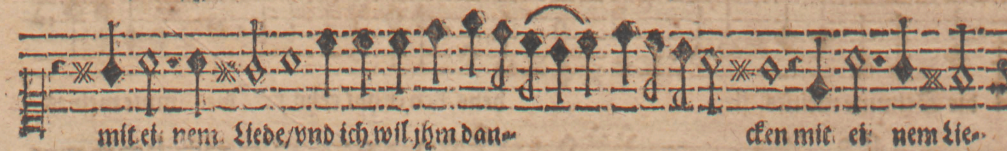 mit ei nem Liede/vnd ich wil jhm dan- cken mit ei nem Lie-